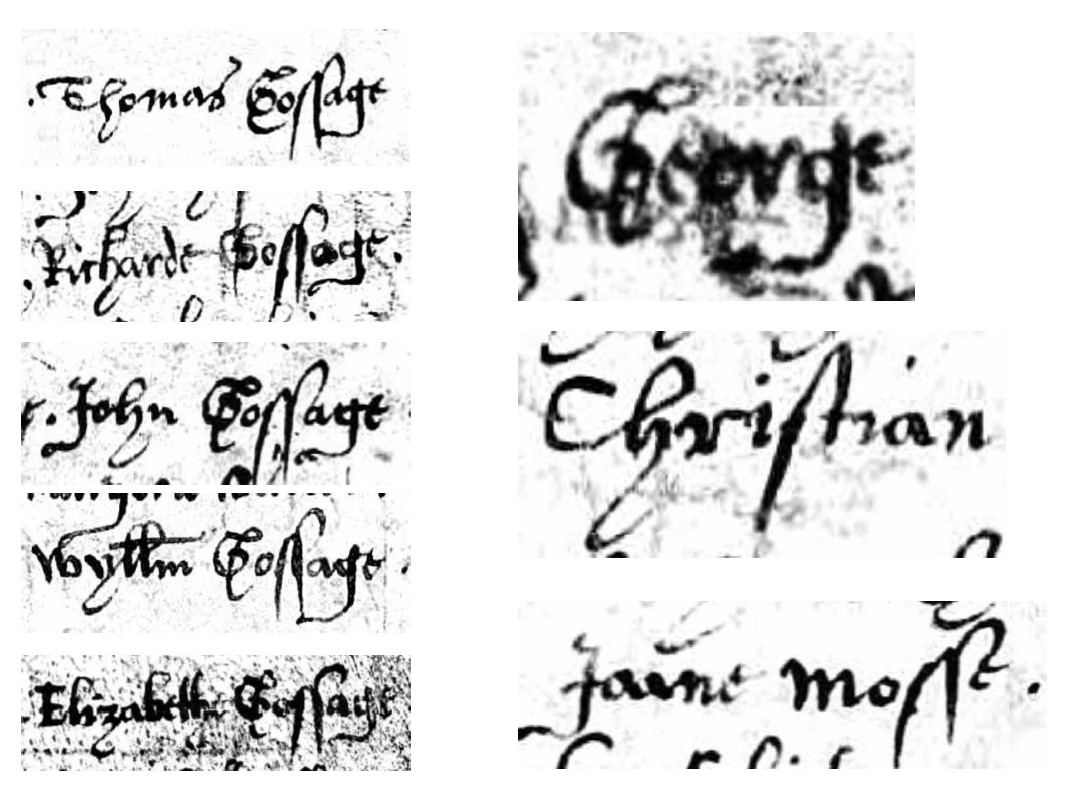 . Thomas Gossage
. Richarde Gossage .
. John Gossage
Wyllm Gossage .
Elizabeth Gossage
George
Christian
Jaine Mosse .